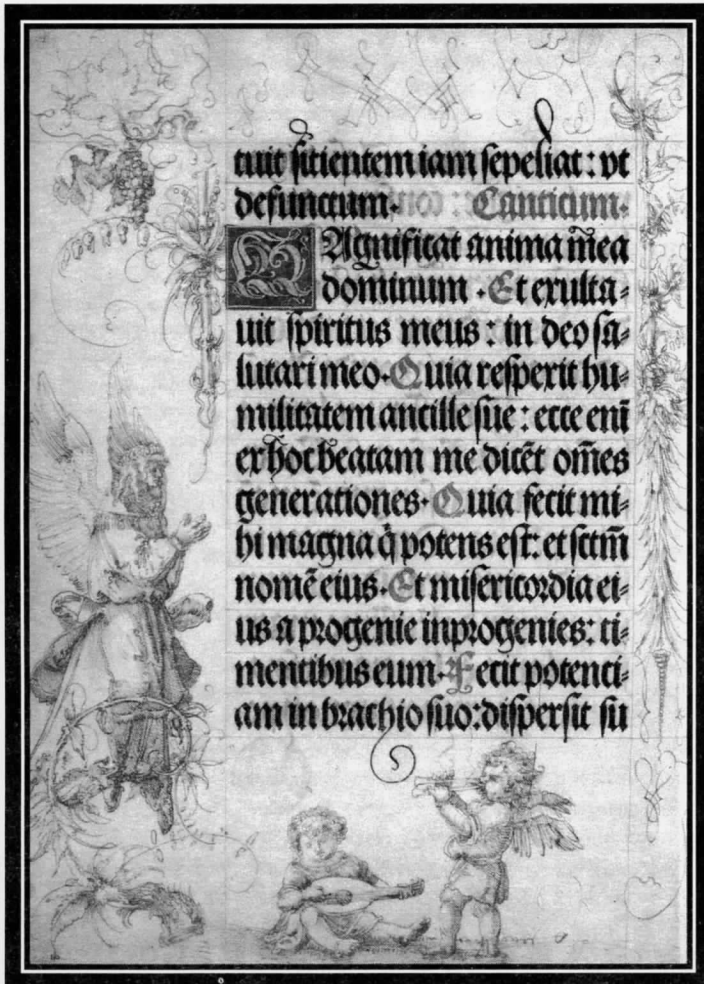 tuit sitientem iam sepeliat : vt
defunctum. Canticum.
MAgnificat anima mea
dominum . Et exulta-
uit spiritus meus : in deo sa-
lutari meo. Quia respexit hu-
militatem ancille sue : ecce eni̅
ex hoc beatam me dice̅t om̅es
generationes. Quia fecit mi-
hi magna q̇ potens est: et sctm̅
nome̅ eius. Et misericordia ei-
us a progenie in progenies: ti-
mentibus eum. Fecit potenci-
am in brachio suo: dispersit su